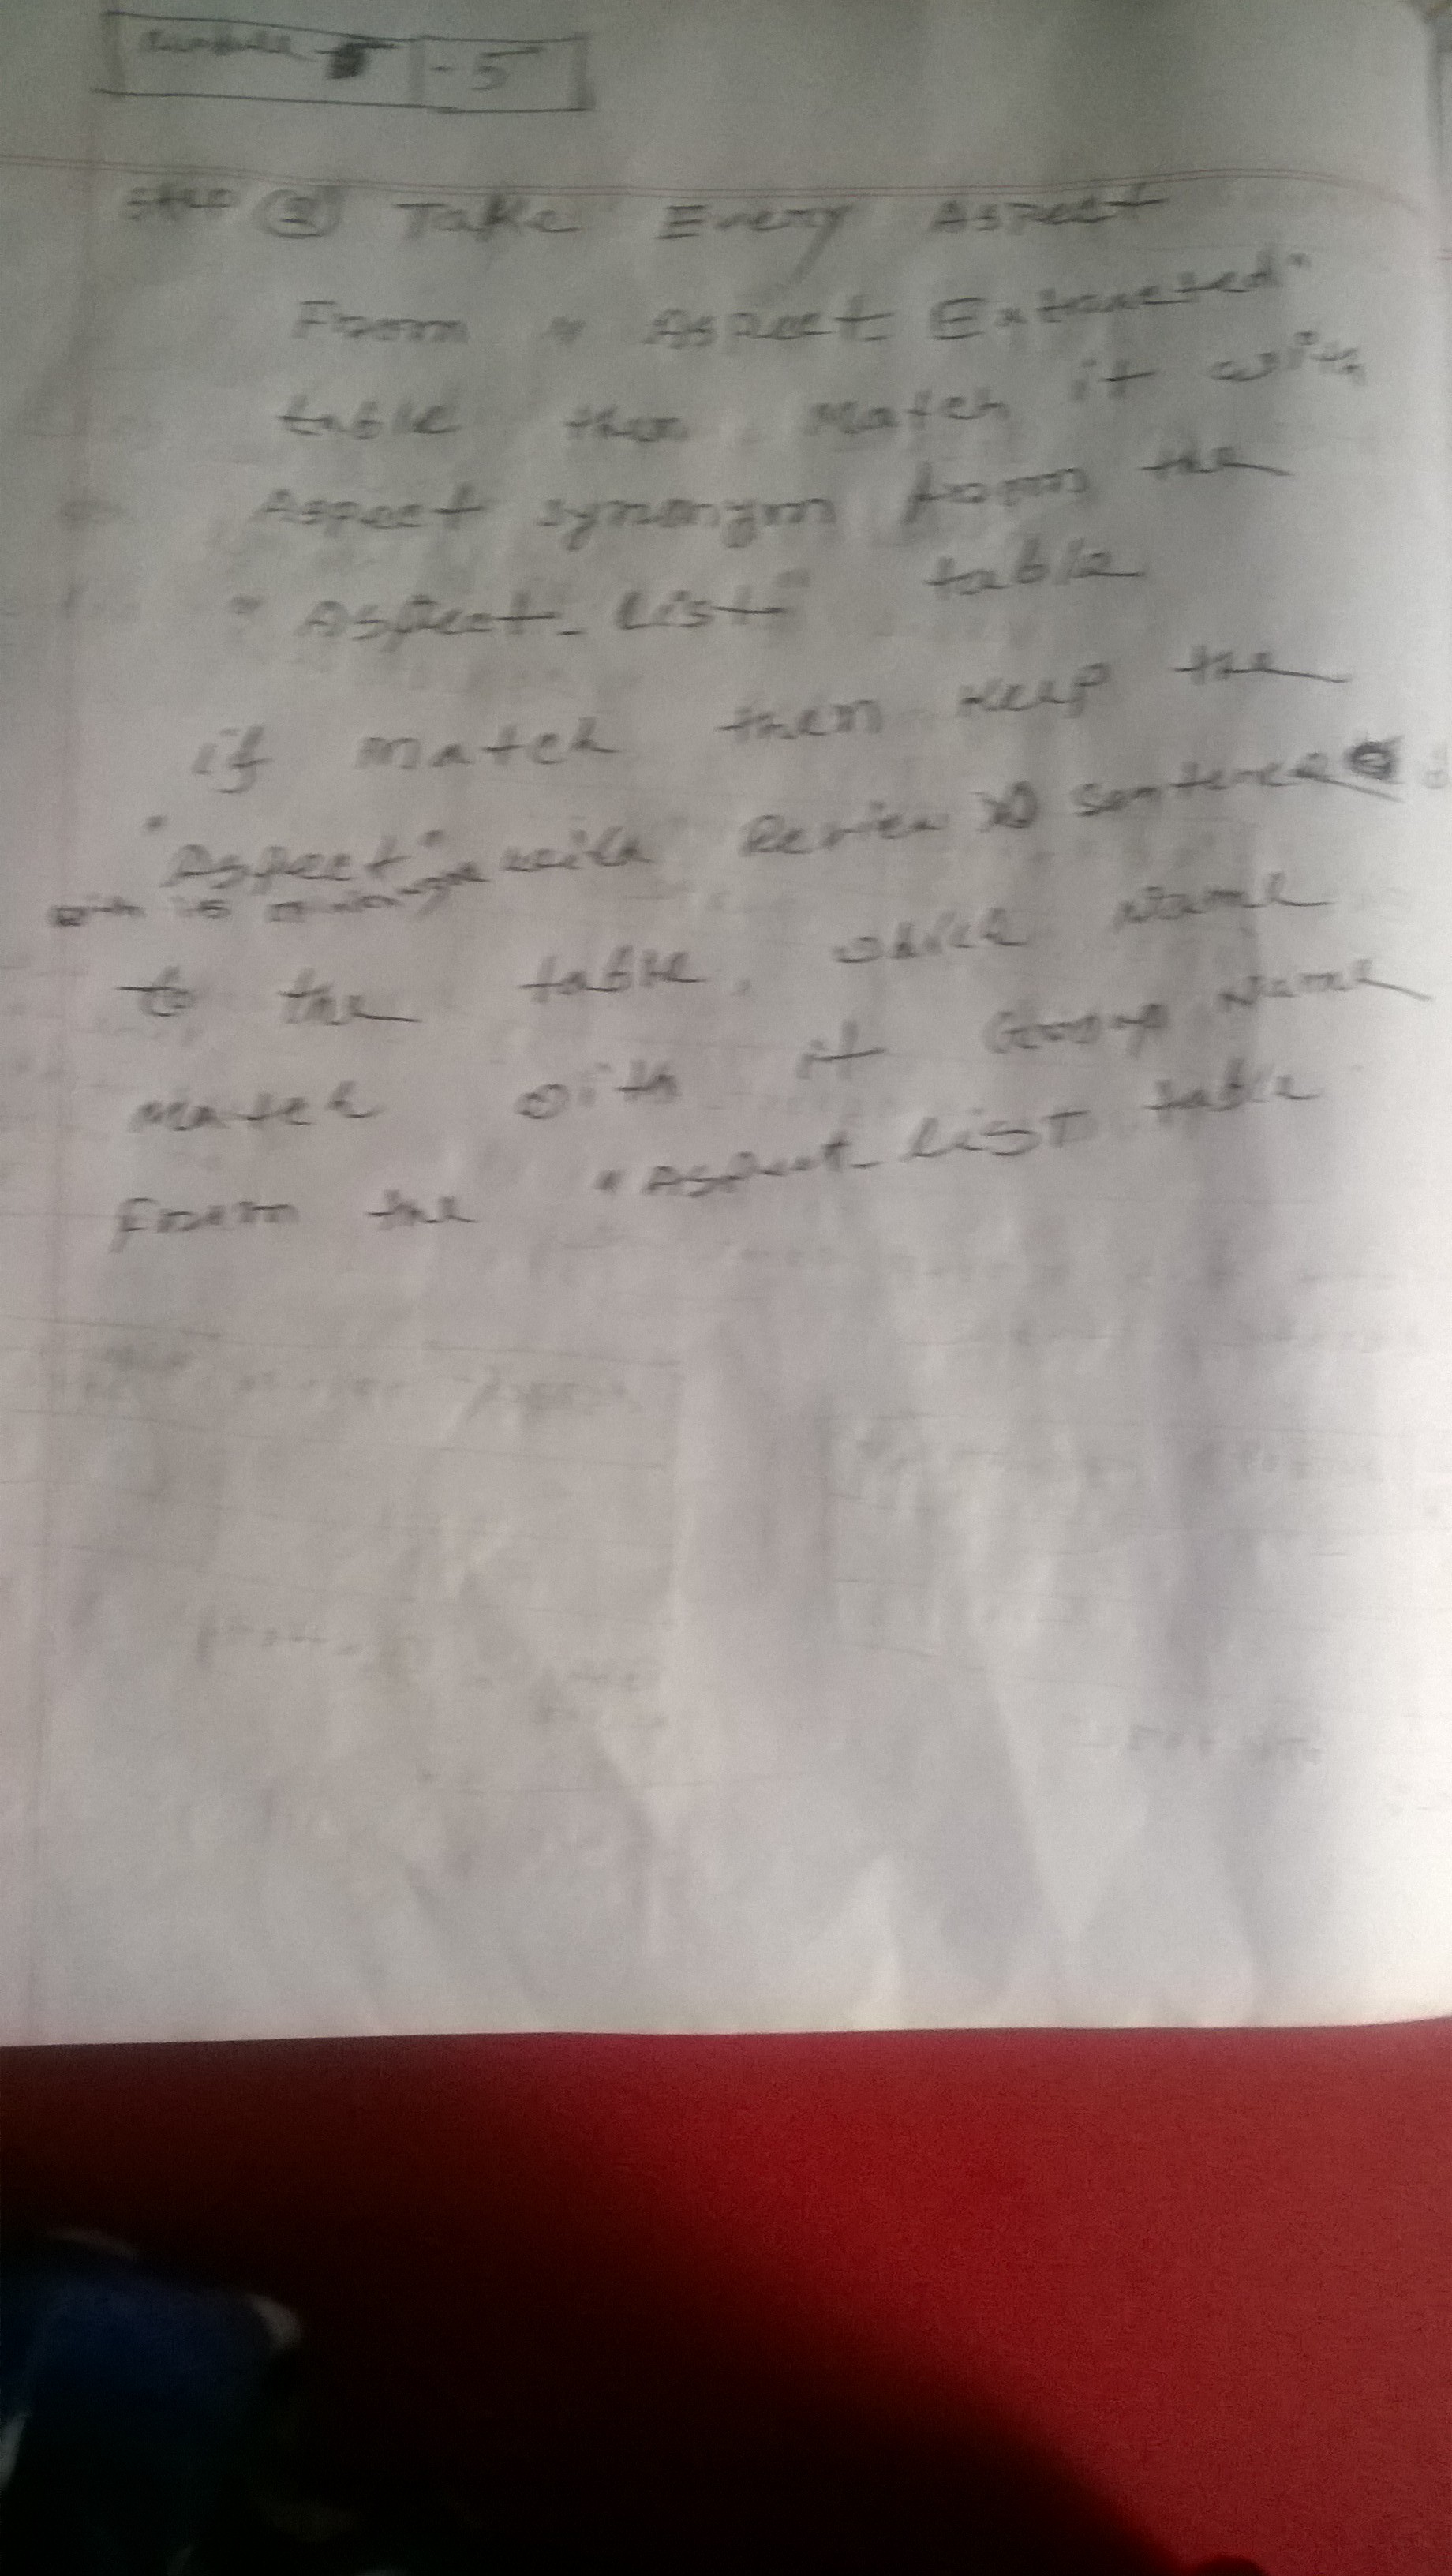 - 5
Step ③ Take Every Aspect
From " Aspect_Extracted"
table then Match it with
Aspect synonym from the
"Aspect_List" table
if match then keep the
"Aspect" with Review ID Sentence
to the table, which Name
Match with it Group Name
From the "Aspect_List table